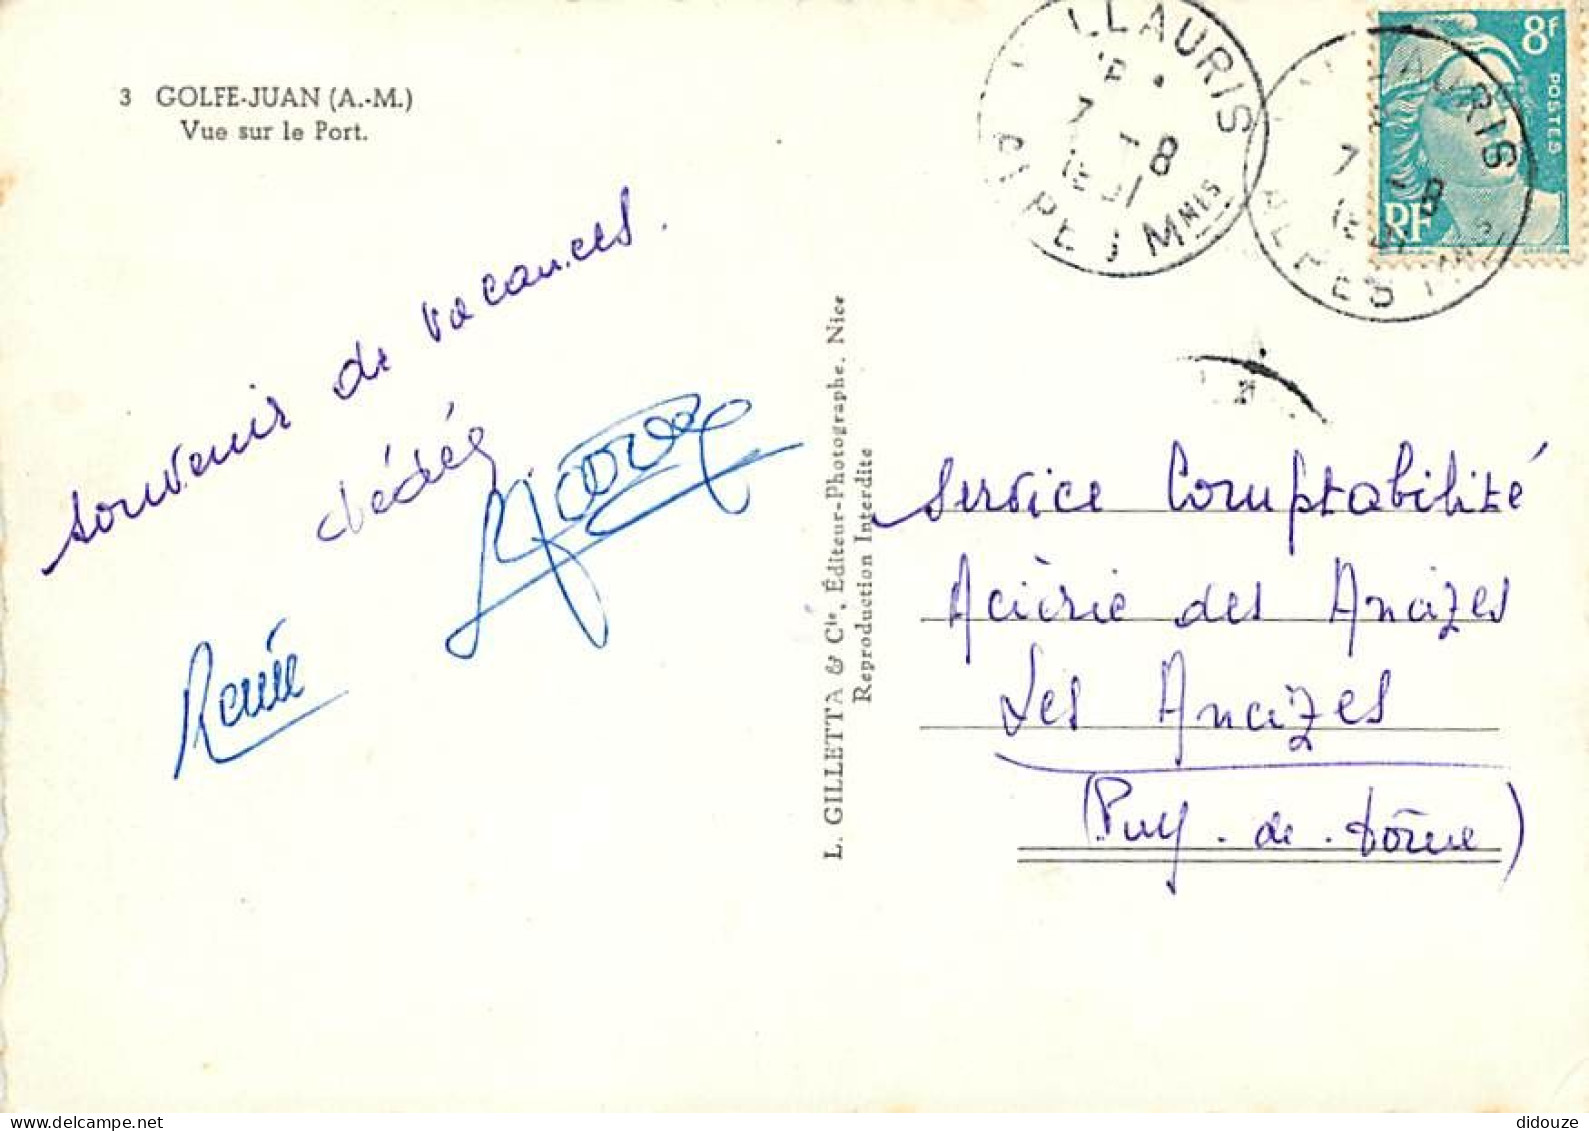 3 GOLFE-JUAN (A.-M.)
Vue sur le Port.
souvenir de vacances.
dédée
Renée
L. GILLETTA & Cie, Éditeur-Photographe, Nice
Reproduction Interdite
LLAURIS
7 -8
MNIS
AURIS
7 -8
ALPES
8F
POSTES
RF
Service Comptabilité
Aciérie des Ancizes
Les Ancizes
(Puy-de-dôme)
didouze